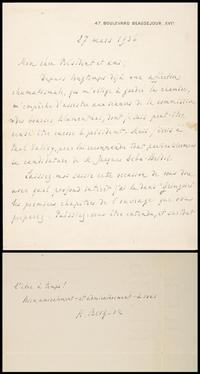 47, BOULEVARD BEAUSÉJOUR, XVIᵉ
27 mars 1936
Mon cher Président et ami,
Depuis longtemps déjà une affection
rhumatismale, qui m'oblige à garder la chambre,
m'empêche d'assister aux séances de la commission
des bourses Blumenthal, dont, je
crois, être encore le président. Mais, j'écris à
Paul Valéry, pour lui recommander tout particulièrement
la candidature de M. Jacques
Laissez-moi saisir cette occasion de vous dire
avec quel profond intérêt j'ai lu dans "Gringoire"
les premiers chapitres de l'ouvrage que vous
préparez. Puissiez-vous être entendu, et surtout
l'être à temps !
Bien amicalement et admirativement à vous
H. Bergson